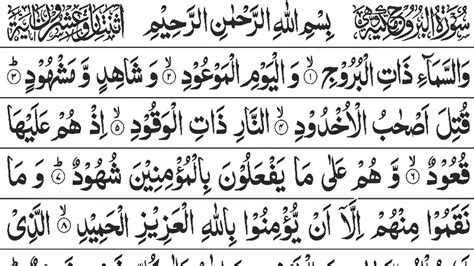 سُوْرَةُ الْبُرُوْجِ مَكِّيَّةٌ بِسْمِ اللهِ الرَّحْمٰنِ الرَّحِيْمِ
وَالسَّمَآءِ ذَاتِ الْبُرُوْجِ ۙ﴿۱﴾ وَ الْيَوْمِ الْمَوْعُوْدِ ۙ﴿۲﴾ وَ شَاهِدٍ وَّ مَشْهُوْدٍ ؕ﴿۳﴾
قُتِلَ اَصْحٰبُ الْاُخْدُوْدِ ۙ﴿۴﴾ النَّارِ ذَاتِ الْوَقُوْدِ ۙ﴿۵﴾ اِذْ هُمْ عَلَيْهَا
قُعُوْدٌ ۙ﴿۶﴾ وَّ هُمْ عَلٰى مَا يَفْعَلُوْنَ بِالْمُؤْمِنِيْنَ شُهُوْدٌ ؕ﴿۷﴾ وَ مَا
نَقَمُوْا مِنْهُمْ اِلَّآ اَنْ يُّؤْمِنُوْا بِاللهِ الْعَزِيْزِ الْحَمِيْدِ ۙ﴿۸﴾ الَّذِيْ